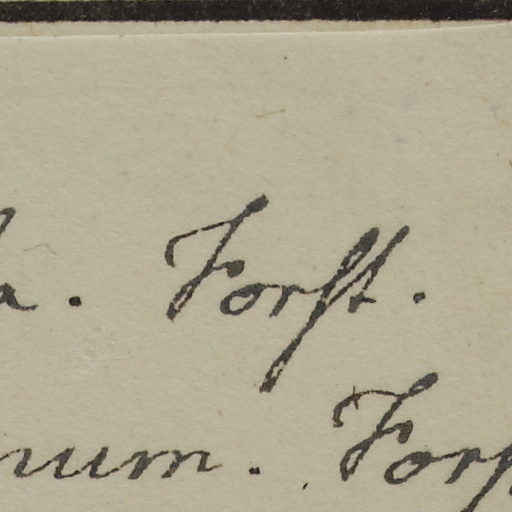 a. Forst.
num. Fors